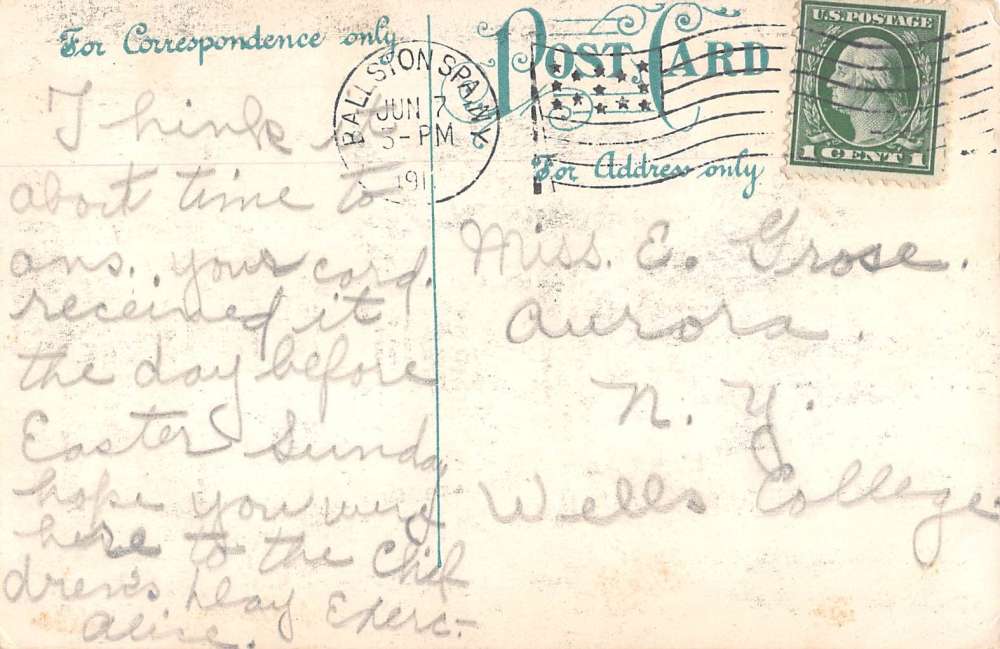 For Correspondence only
POST CARD
For Address only
U.S. POSTAGE
1 CENT 1
BALLSTON SPA, N.Y.
JUN 7
5-PM
191
Think it
about time to
ans. your card.
received it
the day before
Easter Sunday
hope you were
here to the Chil
dren's Day Exerc-
Alice.
Miss. E. Grose.
Aurora.
N. Y.
Wells College